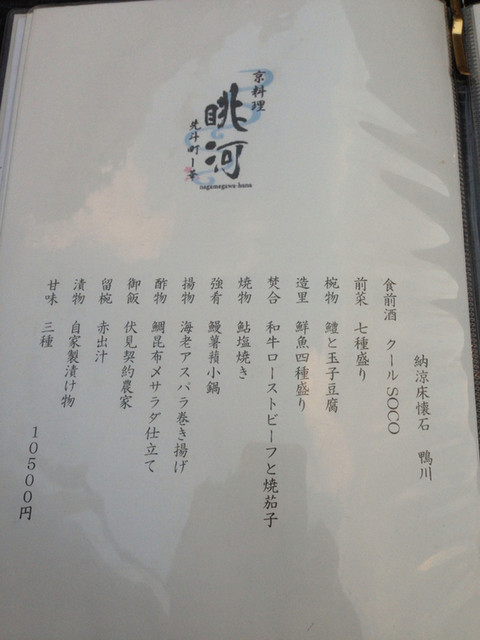 京料理
眺河
先斗町 華
nagamegawa-hana
納涼床懐石 鴨川
食前酒 クールSOCO
前菜 七種盛り
椀物 鱧と玉子豆腐
造里 鮮魚四種盛り
焚合 和牛ローストビーフと焼茄子
焼物 鮎塩焼き
強肴 鰻薯蕷小鍋
揚物 海老アスパラ巻き揚げ
酢物 鯛昆布〆サラダ仕立て
御飯 伏見契約農家
留椀 赤出汁
漬物 自家製漬け物
甘味 三種
10500円